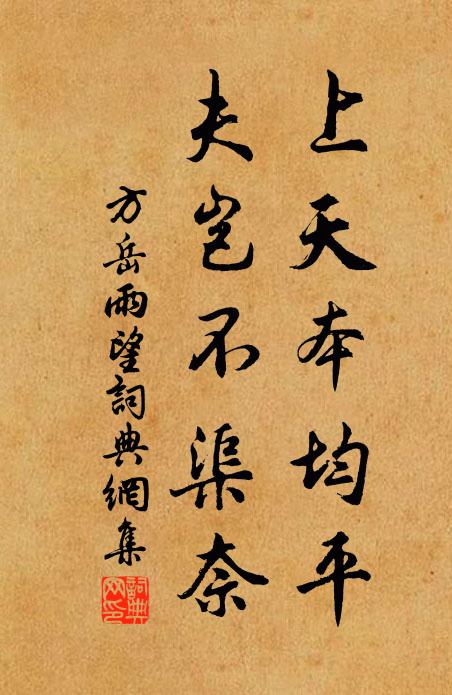 上天本均平
夫岂不渠奈
方岳雨望詞典網集
詞典网印